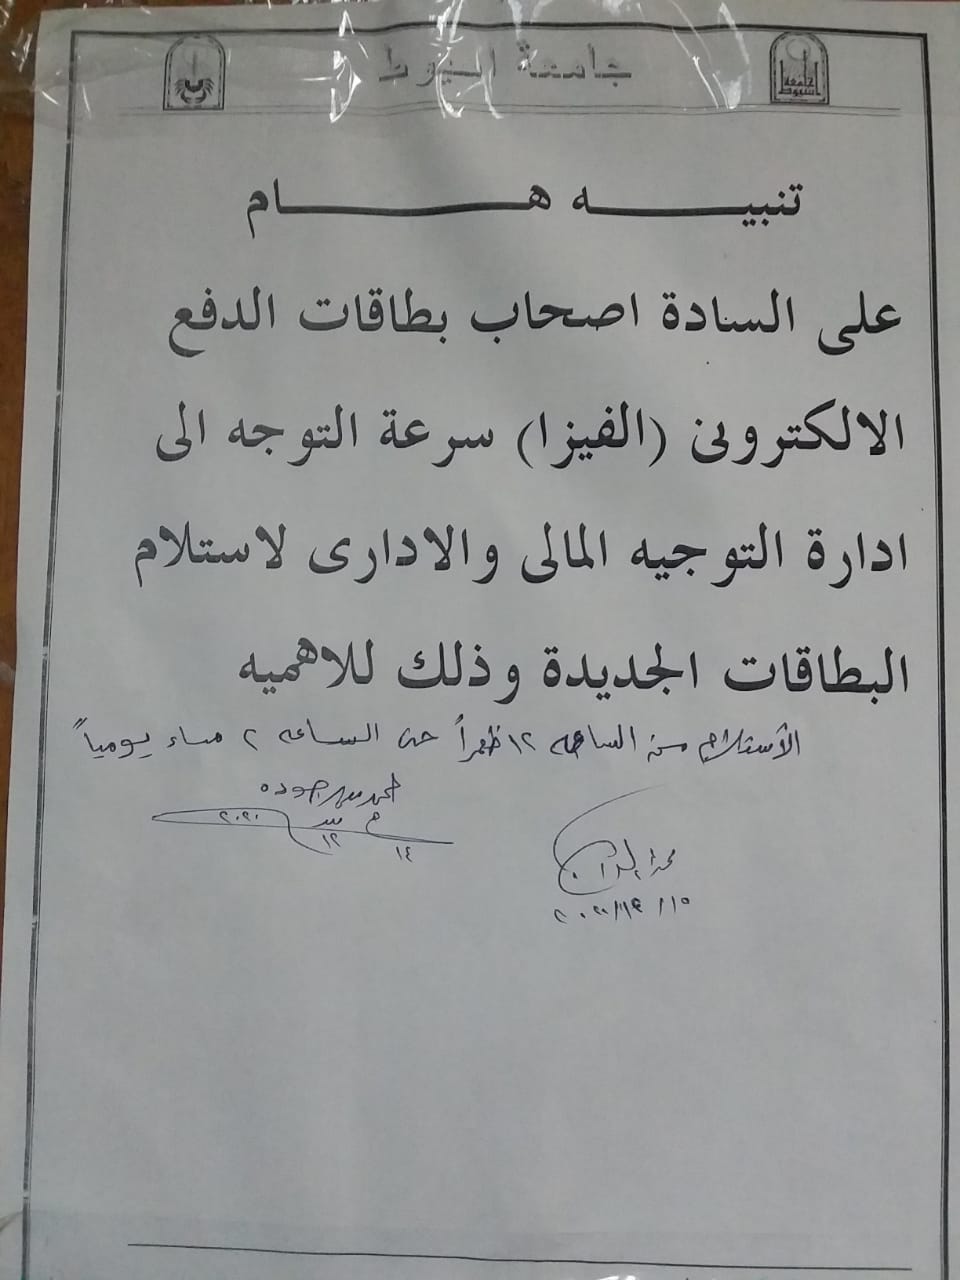 جامعة اسيوط
جامعة
اسيوط
تنبيه هام
على السادة اصحاب بطاقات الدفع
الالكترونى (الفيزا) سرعة التوجه الى
ادارة التوجيه المالى والادارى لاستلام
البطاقات الجديدة وذلك للاهميه
الأستلام من الساعه ١٢ ظهراً حتى الساعه ٢ مساء يومياً
١٤ ١٢ ٢٠٢٠